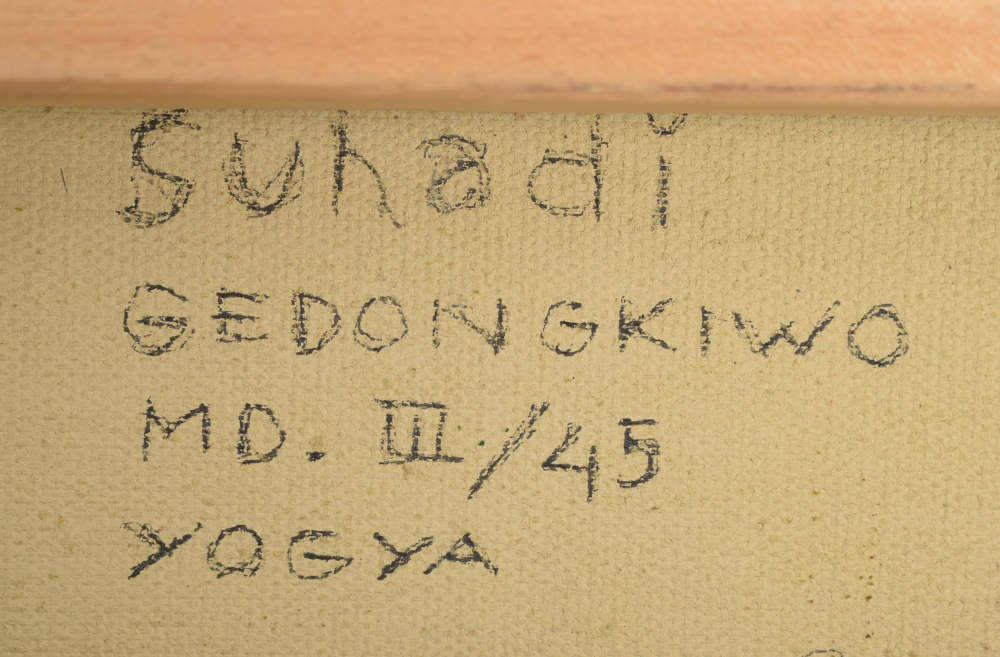 Suhadi
GEDONGKIWO
MD. III/45
YOGYA